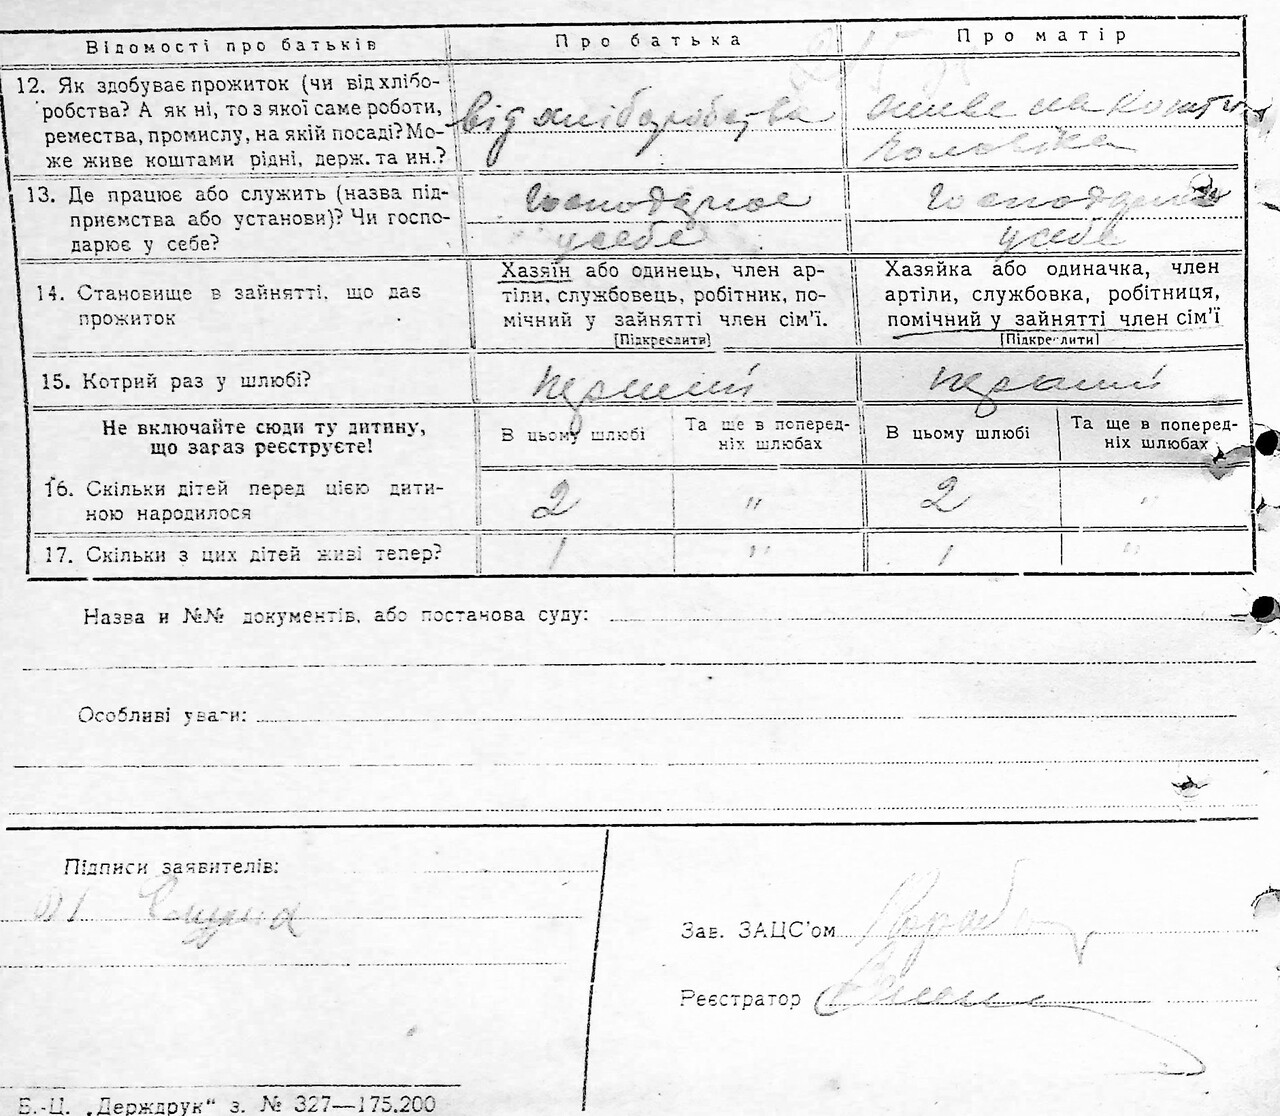 Відомості про батьків Про батька Про матір
12. Як здобуває прожиток (чи від хлібо-
робства? А як ні, то з якої саме роботи,
ремества, промислу, на якій посаді? Мо-
же живе коштами рідні, держ. та ин.?
від хліборобства
живе на кошти
чоловіка
13. Де працює або служить (назва під-
приємства або установи)? Чи госпо-
дарює у себе?
Господарює
у себе
Господарює
у себе
14. Становище в зайнятті, що дає
прожиток
Хазяїн або одинець, член ар-
тіли, службовець, робітник, по-
мічний у зайнятті член сім’ї.
[Підкреслити]
Хазяйка або одиначка, член
артіли, службовка, робітниця,
помічний у зайнятті член сім’ї
[Підкреслити]
15. Котрий раз у шлюбі? перший перший
Не включайте сюди ту дитину,
що загаз реєструєте!
В цьому шлюбі
Та ще в поперед-
ніх шлюбах
В цьому шлюбі
Та ще в поперед-
ніх шлюбах
16. Скільки дітей перед цією дити-
ною народилося
2 " 2 "
17. Скільки з цих дітей живі тепер? 1 " 1 "
Назва и №№ документів, або постанова суду:
Особливі уваги:
Підписи заявителів:
Зав. ЗАЦС’ом
Реєстратор
Б.-Ц. „Держдрук“ з. № 327—175.200